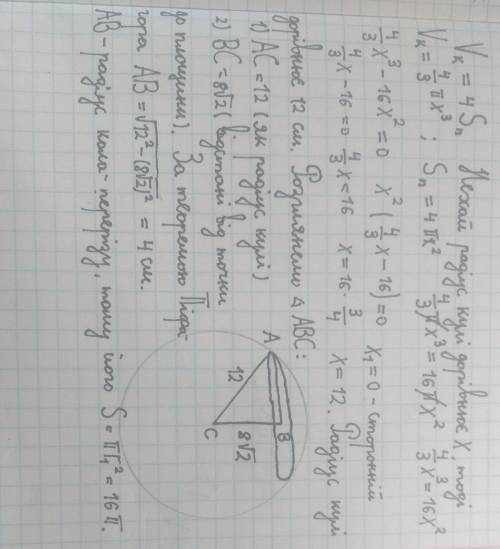 Vк = 4Sп Нехай радіус кулі дорівнює X, тоді
Vк = 4/3 πx³ ; Sп = 4πx² 4/3 πx³ = 16πx² 4/3 x³ = 16x²
4/3 x³ - 16x² = 0 x² (4/3 x - 16) = 0 x₁ = 0 - сторонній
4/3 x - 16 = 0 4/3 x = 16 x = 16 · 3/4 x = 12. Радіус кулі
дорівнює 12 см. Розглянемо Δ ABC:
1) AC = 12 (як радіус кулі)
2) BC = 8√2 (відстані від точки
до площини). За теоремою Піфа-
гора AB = √12² - (8√2)² = 4 см.
AB - радіус кола - перерізу, тому його S = πr₁² = 16π.
A
12
C
8√2
B